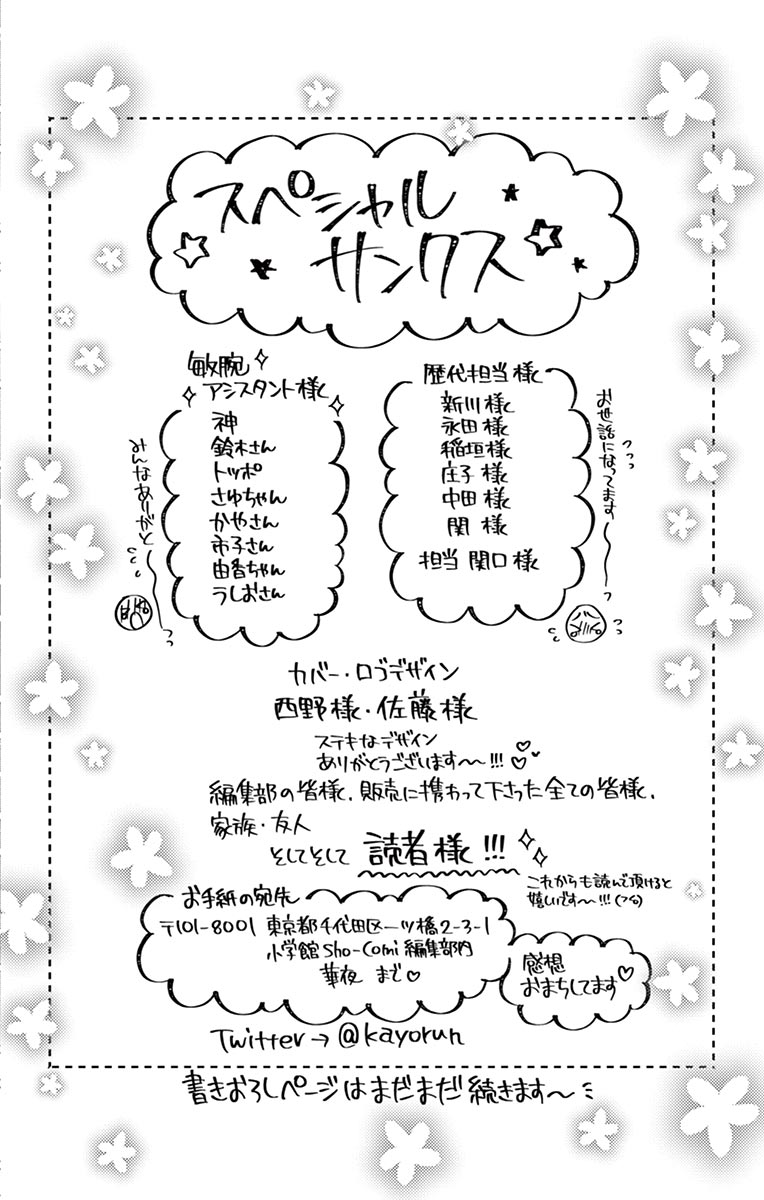 スペシャル
サンクス
敏腕
アシスタント様
神
鈴木さん
トッポ
さゆちゃん
かやさん
市子さん
由香ちゃん
うしおさん
みんなありがと〜
歴代担当様
新川様
永田様
稲垣様
庄子様
中田様
関様
担当 関口様
お世話になってます〜
カバー・ロゴデザイン
西野様・佐藤様
ステキなデザイン
ありがとうございます〜〜!!!♡♡
編集部の皆様、販売に携わって下さった全ての皆様、
家族・友人
そしてそして 読者様!!!
これからも読んで頂けると
嬉しいです〜!!!
お手紙の宛先
〒101-8001 東京都千代田区一ツ橋2-3-1
小学館 Sho-Comi 編集部内
華夜 まで♡
感想
おまちしてます♡
Twitter→@kayorun
書きおろしページはまだまだ続きます〜